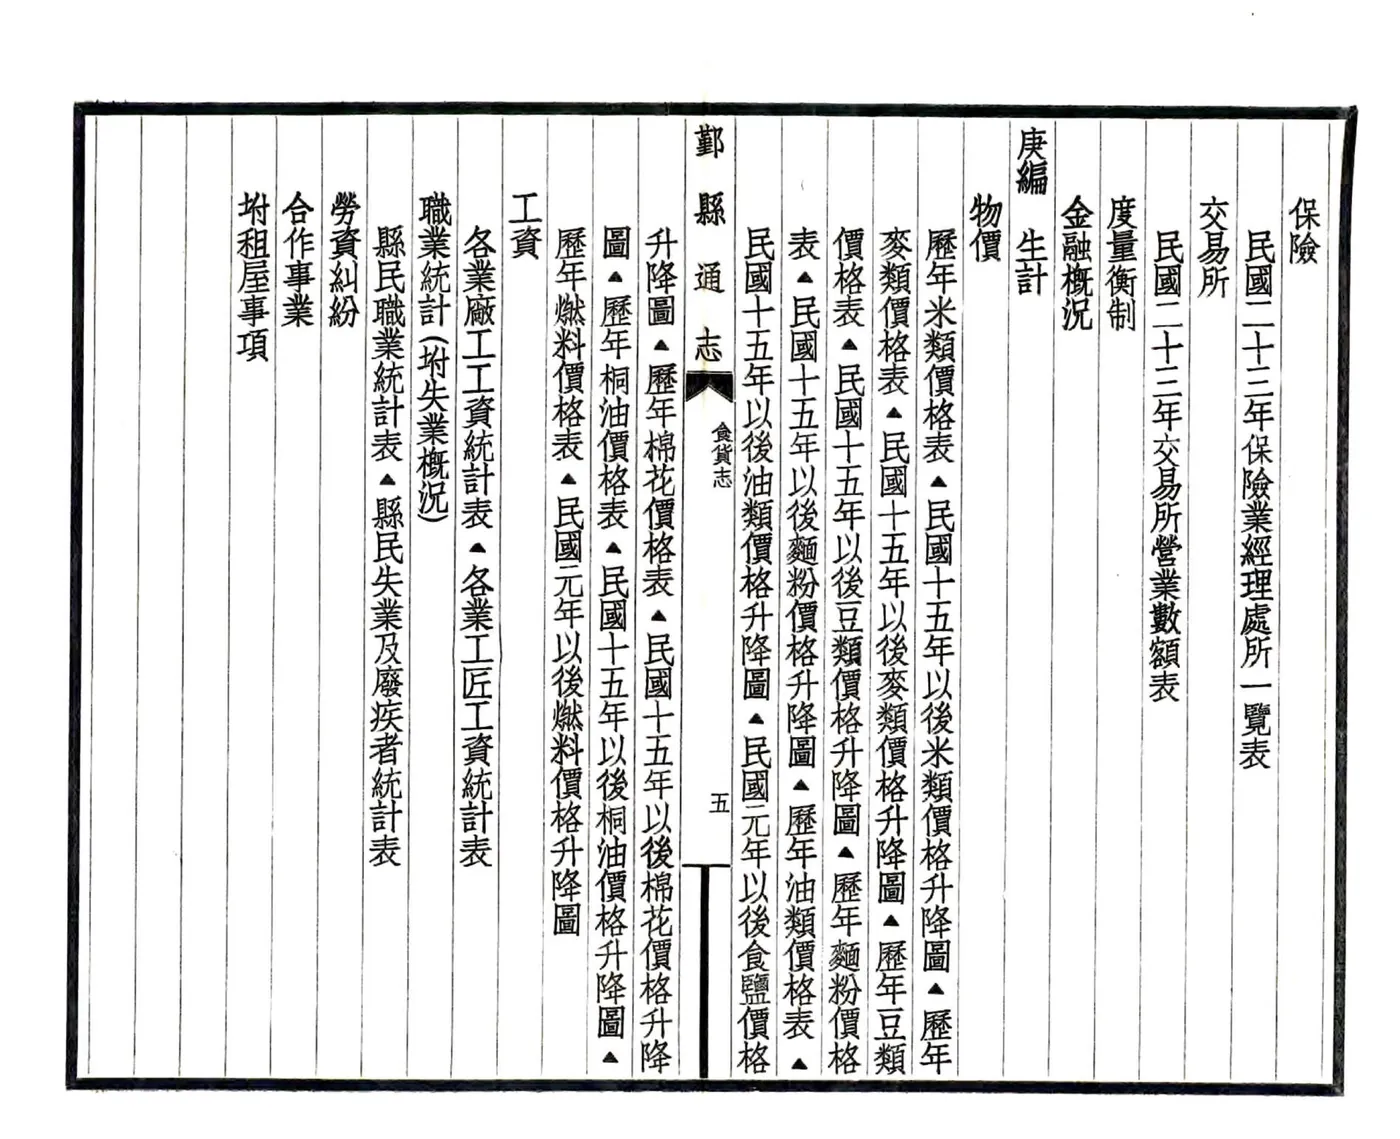 保險
民國二十三年保險業經理處所一覽表
交易所
民國二十三年交易所營業數額表
度量衡制
金融槪況
庚編　生計
物價
歷年米類價格表▲民國十五年以後米類價格升降圖▲歷年
麥類價格表▲民國十五年以後麥類價格升降圖▲歷年豆類
價格表▲民國十五年以後豆類價格升降圖▲歷年麵粉價格
表▲民國十五年以後麵粉價格升降圖▲歷年油類價格表▲
民國十五年以後油類價格升降圖▲民國元年以後食鹽價格
鄞縣通志
食貨志
五
升降圖▲歷年棉花價格表▲民國十五年以後棉花價格升降
圖▲歷年桐油價格表▲民國十五年以後桐油價格升降圖▲
歷年燃料價格表▲民國元年以後燃料價格升降圖
工資
各業廠工工資統計表▲各業工匠工資統計表
職業統計(坿失業槪況)
縣民職業統計表▲縣民失業及廢疾者統計表
勞資糾紛
合作事業
坿租屋事項